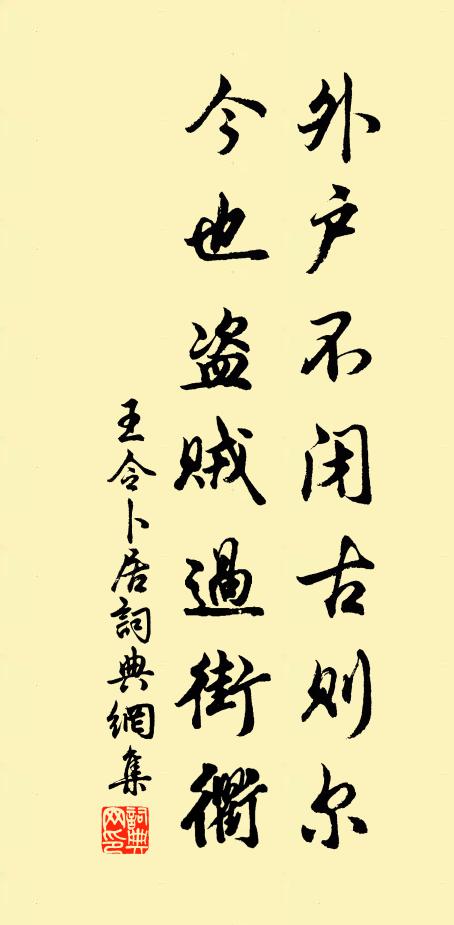 外户不闭古则尔
今也盗贼過街衢
王令卜居詞典網集
詞典网印